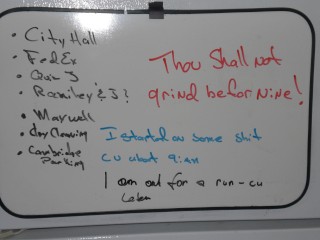 • City Hall
• FedEx
Thou Shall not
grind befor Nine!
• Maxwell
• dry Cleaning
• Cambridge
Parking
I started on some shit
cu about 9:am
I am out for a run - cu
Later